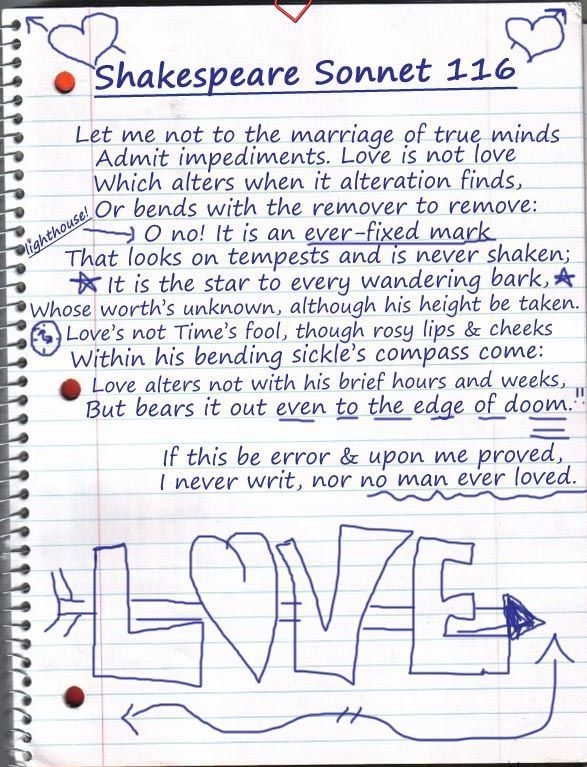 Shakespeare Sonnet 116
Let me not to the marriage of true minds
Admit impediments. Love is not love
Which alters when it alteration finds,
Or bends with the remover to remove:
lighthouse!
O no! It is an ever-fixed mark
That looks on tempests and is never shaken;
It is the star to every wandering bark,
Whose worth's unknown, although his height be taken.
Love's not Time's fool, though rosy lips & cheeks
Within his bending sickle's compass come:
Love alters not with his brief hours and weeks,
But bears it out even to the edge of doom."
If this be error & upon me proved,
I never writ, nor no man ever loved.
LOVE